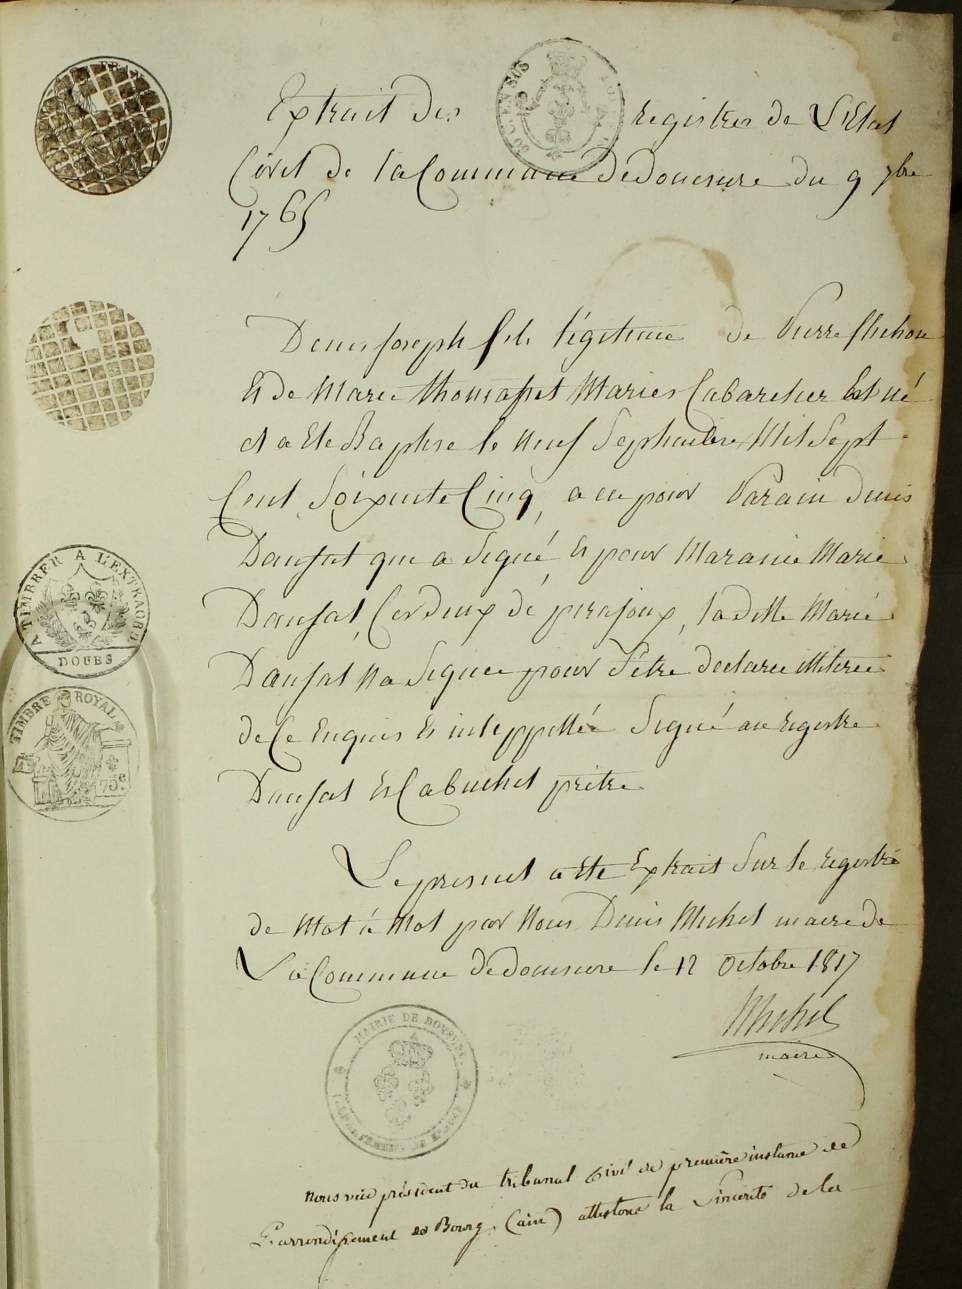 Extrait des registres de L'Etat
Civil de la Commune de domsure du 9 7bre
1765
Denis Joseph fils légitime de Pierre
Et de Marie thomasset Mariés Cabaretier Est né
et a Eté Baptisé le neuf Septembre Mil Sept
Cent Soixente Cinq, a eu pour Parain Denis
Daufat qui a Signé, Et pour Maraine Marie
Daufat, les deux de pirajoux, la ditte Marie
Daufat na Signee pour s'être declaree illiteree
de Ce Enquis Et inteppellée Signé au registre
Daufat Et Cabuchet prêtre
Le present a Eté Extrait Sur le registre
de Mot à Mot par Nous Denis Michel maire de
La Commune de domsure le 12 Octobre 1817
Michel
maire
nous vice président du tribunal civil de première instance de
L'arrondissement de Bourg, (ain) attestons la Sincerité de la
A TIMBRER A L'EXTRAORD
DOUBS
TIMBRE ROYAL
75c
MAIRIE DE DOMSURE
DEPARTEMENT DE L'AIN